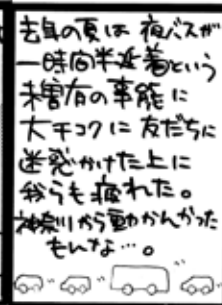 去年の夏は 夜バスが
一時間半延着という
未曽有の事態に
大チコクに 友だちに
迷惑かけた上に
我らも疲れた。
神奈川から動かんかった
もんなぁ…。